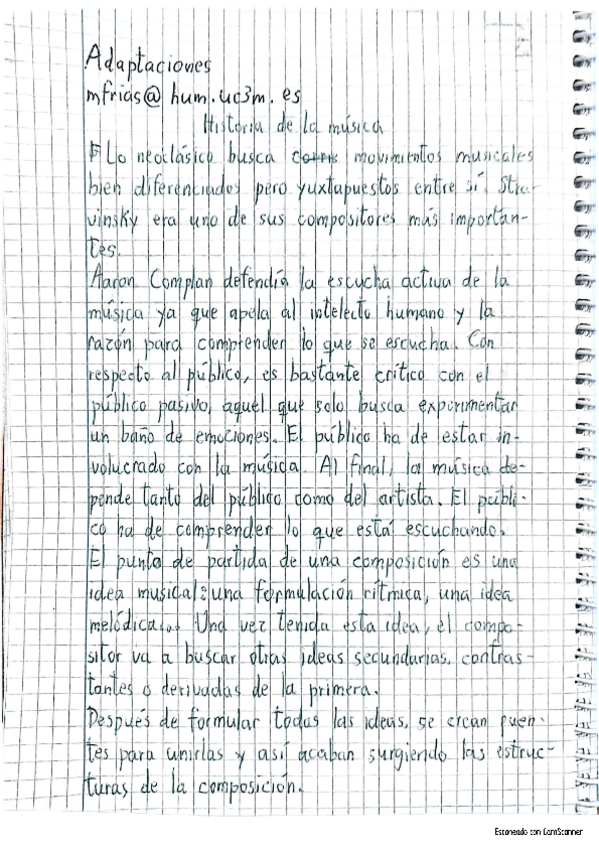 Adaptaciones
mfrias@hum.uc3m.es
Historia de la música
Lo neoclásico busca movimientos musicales
bien diferenciados pero yuxtapuestos entre sí. Stra-
vinsky era uno de sus compositores más importan-
tes.
Aaron Complan defendía la escucha activa de la
música ya que apela al intelecto humano y la
razón para comprender lo que se escucha. Con
respecto al público, es bastante crítico con el
público pasivo, aquél que solo busca experimentar
un baño de emociones. El público ha de estar in-
volucrado con la música. Al final, la música de-
pende tanto del público como del artista. El públi-
co ha de comprender lo que está escuchando.
El punto de partida de una composición es una
idea musical: una formulación rítmica, una idea
melódica... Una vez tenida esta idea, el compo-
sitor va a buscar otras ideas secundarias, contras-
tantes o derivadas de la primera.
Después de formular todas las ideas, se crean puen-
tes para unirlas y así acaban surgiendo las estruc-
turas de la composición.
Escaneado con CamScanner